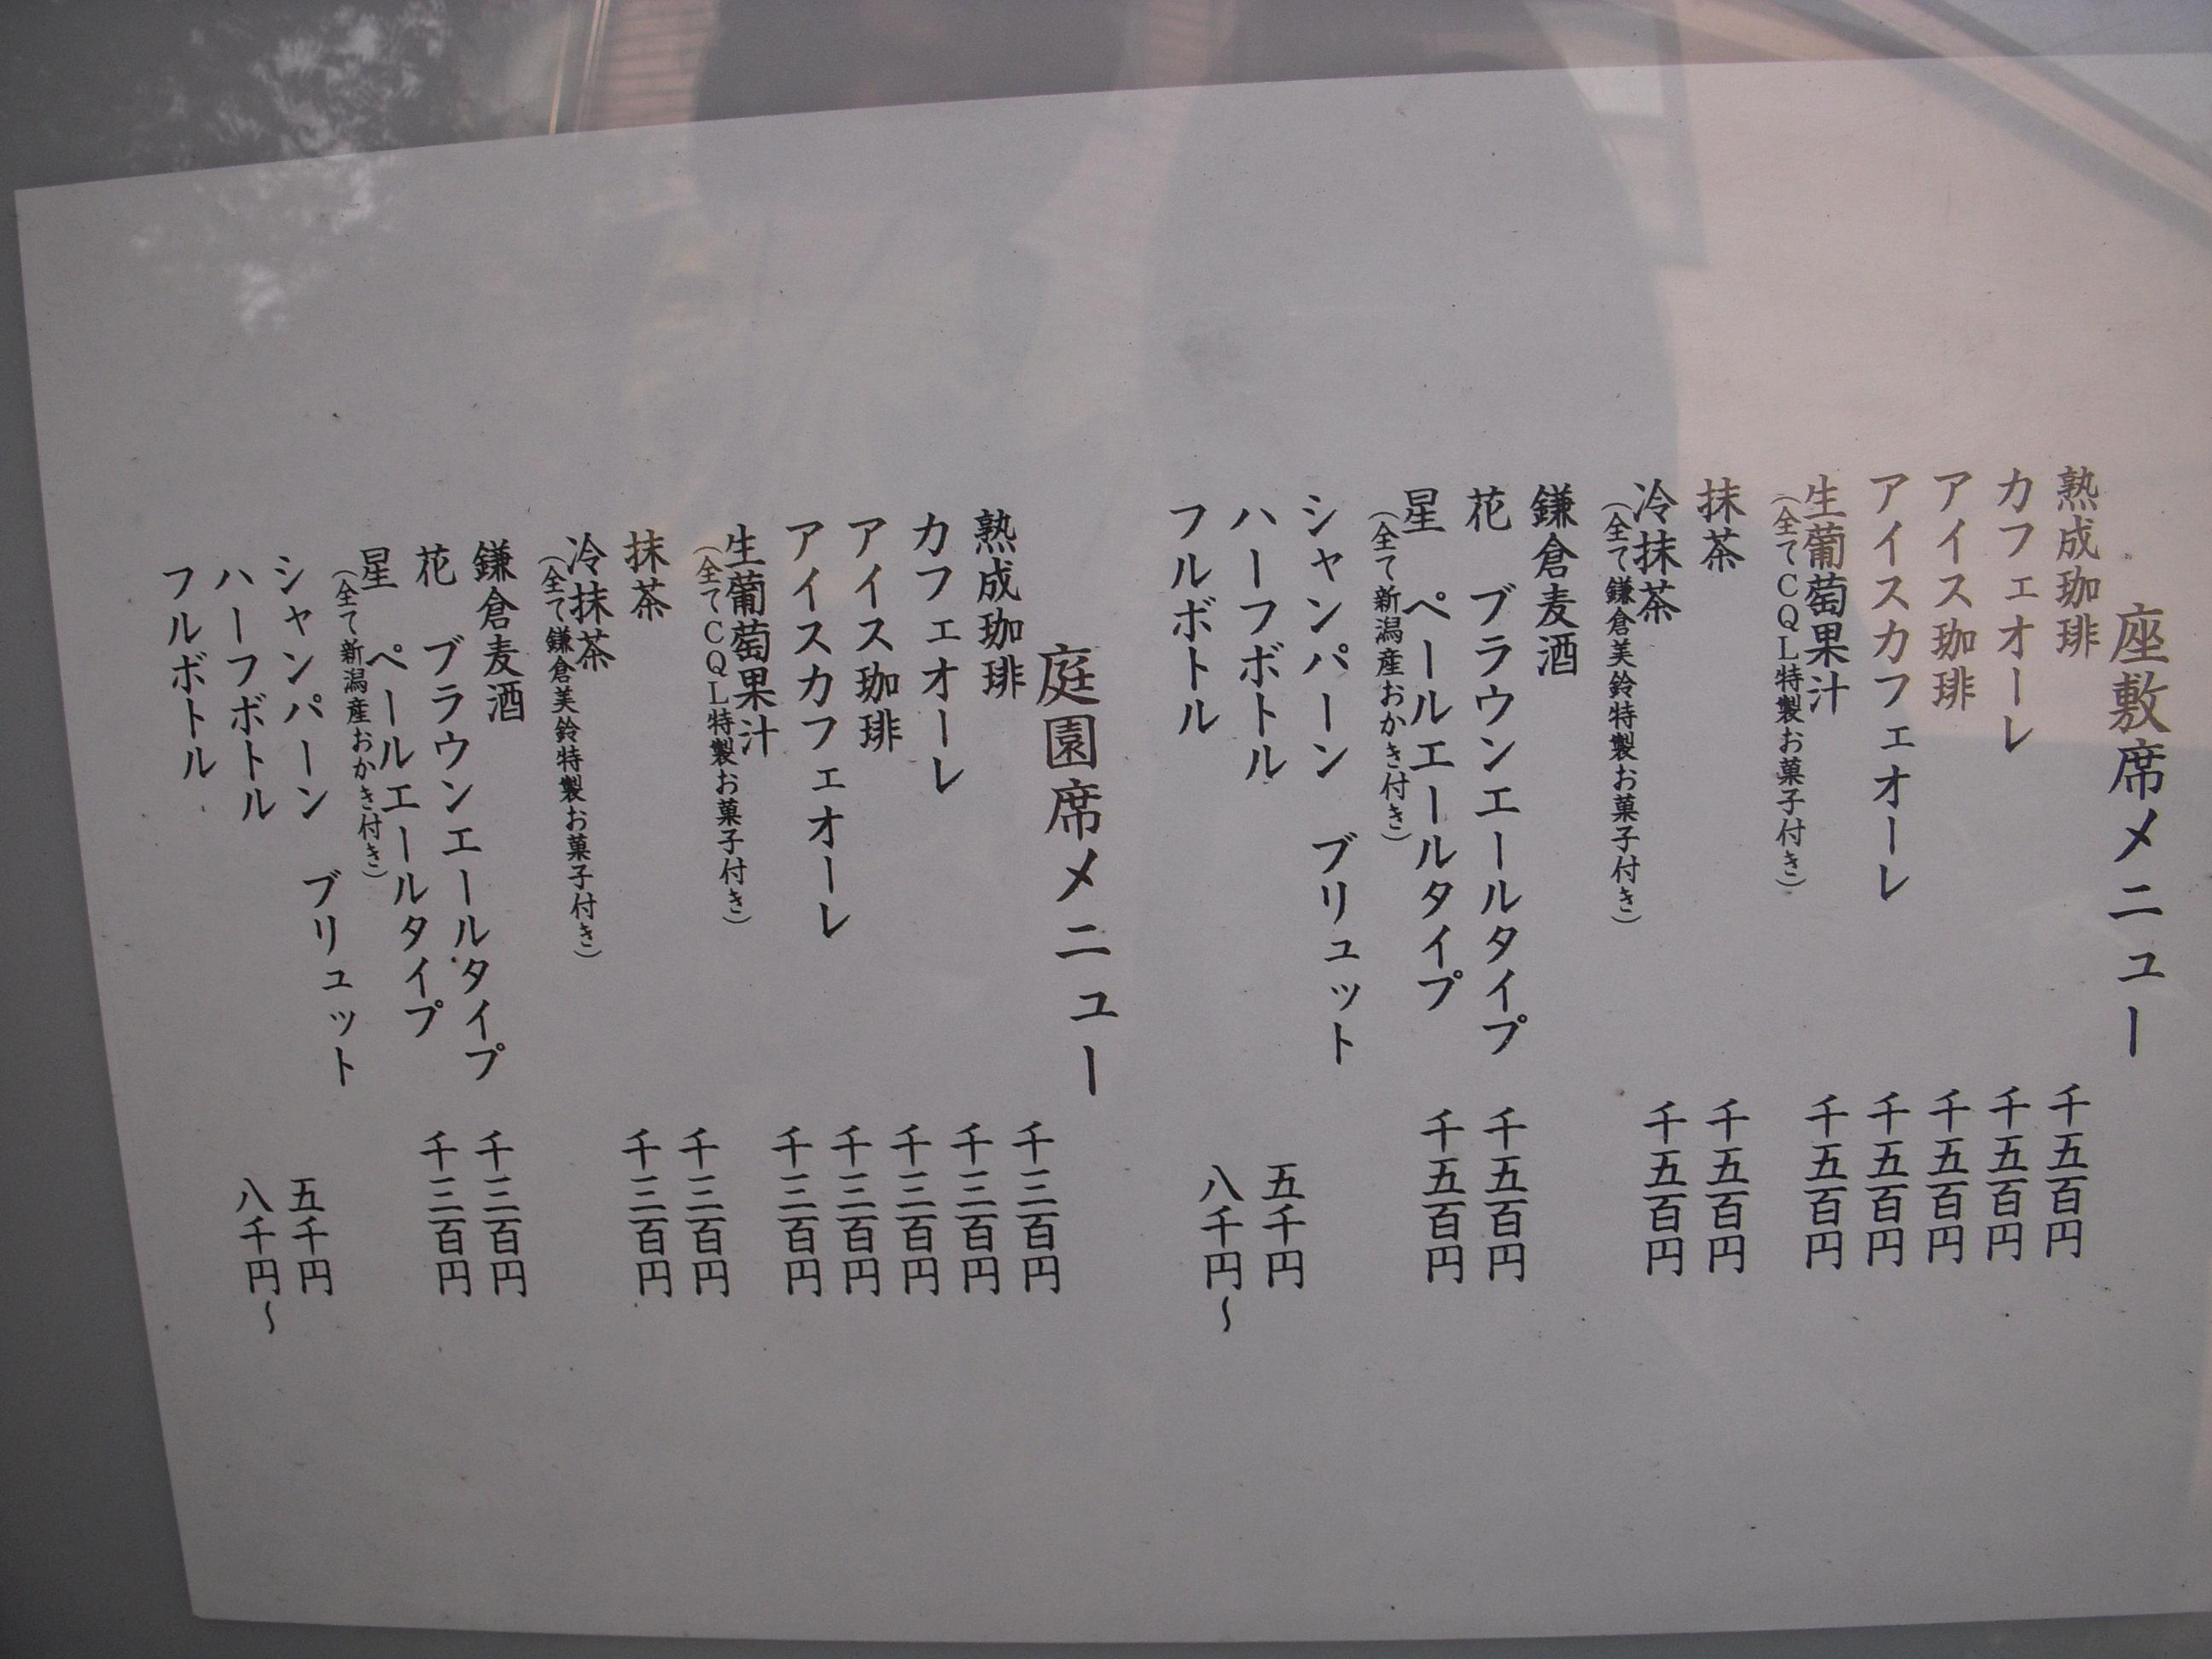 座敷席メニュー
熟成珈琲 千五百円
カフェオーレ 千五百円
アイス珈琲 千五百円
アイスカフェオーレ 千五百円
生葡萄果汁 千五百円
(全てCQL特製お菓子付き)
抹茶 千五百円
冷抹茶 千五百円
(全て鎌倉美鈴特製お菓子付き)
鎌倉麦酒
花 ブラウンエールタイプ 千五百円
星 ペールエールタイプ 千五百円
(全て新潟産おかき付き)
シャンパーン ブリュット
ハーフボトル 五千円
フルボトル 八千円~
庭園席メニュー
熟成珈琲 千三百円
カフェオーレ 千三百円
アイス珈琲 千三百円
アイスカフェオーレ 千三百円
生葡萄果汁 千三百円
(全てCQL特製お菓子付き)
抹茶 千三百円
冷抹茶 千三百円
(全て鎌倉美鈴特製お菓子付き)
鎌倉麦酒
花 ブラウンエールタイプ 千三百円
星 ペールエールタイプ 千三百円
(全て新潟産おかき付き)
シャンパーン ブリュット
ハーフボトル 五千円
フルボトル 八千円~